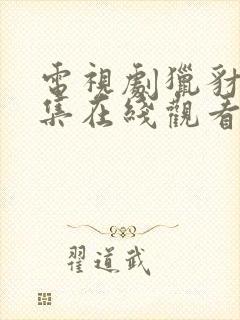 電視劇獵豺
集在綫觀看
翟道武